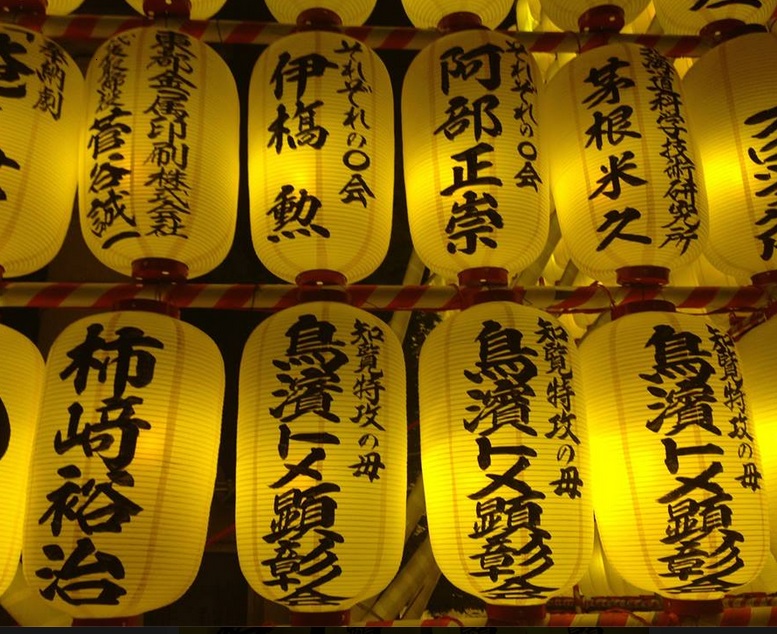 道科学技術研究所
茅根米久
それぞれの〇会
阿部正崇
それぞれの〇会
伊橋 勲
東都金属印刷株式会社
代表取締役
菅谷誠一
奉納劇
知覧特攻の母
鳥濱トメ顕彰会
知覧特攻の母
鳥濱トメ顕彰会
知覧特攻の母
鳥濱トメ顕彰会
柿﨑裕治